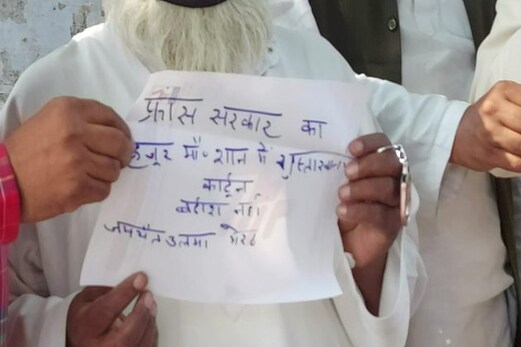 फ्रांस सरकार का
हुजूर मौ० शान में
कार्टून
बर्दाश नहीं
जमयैत उलमा मेरठ